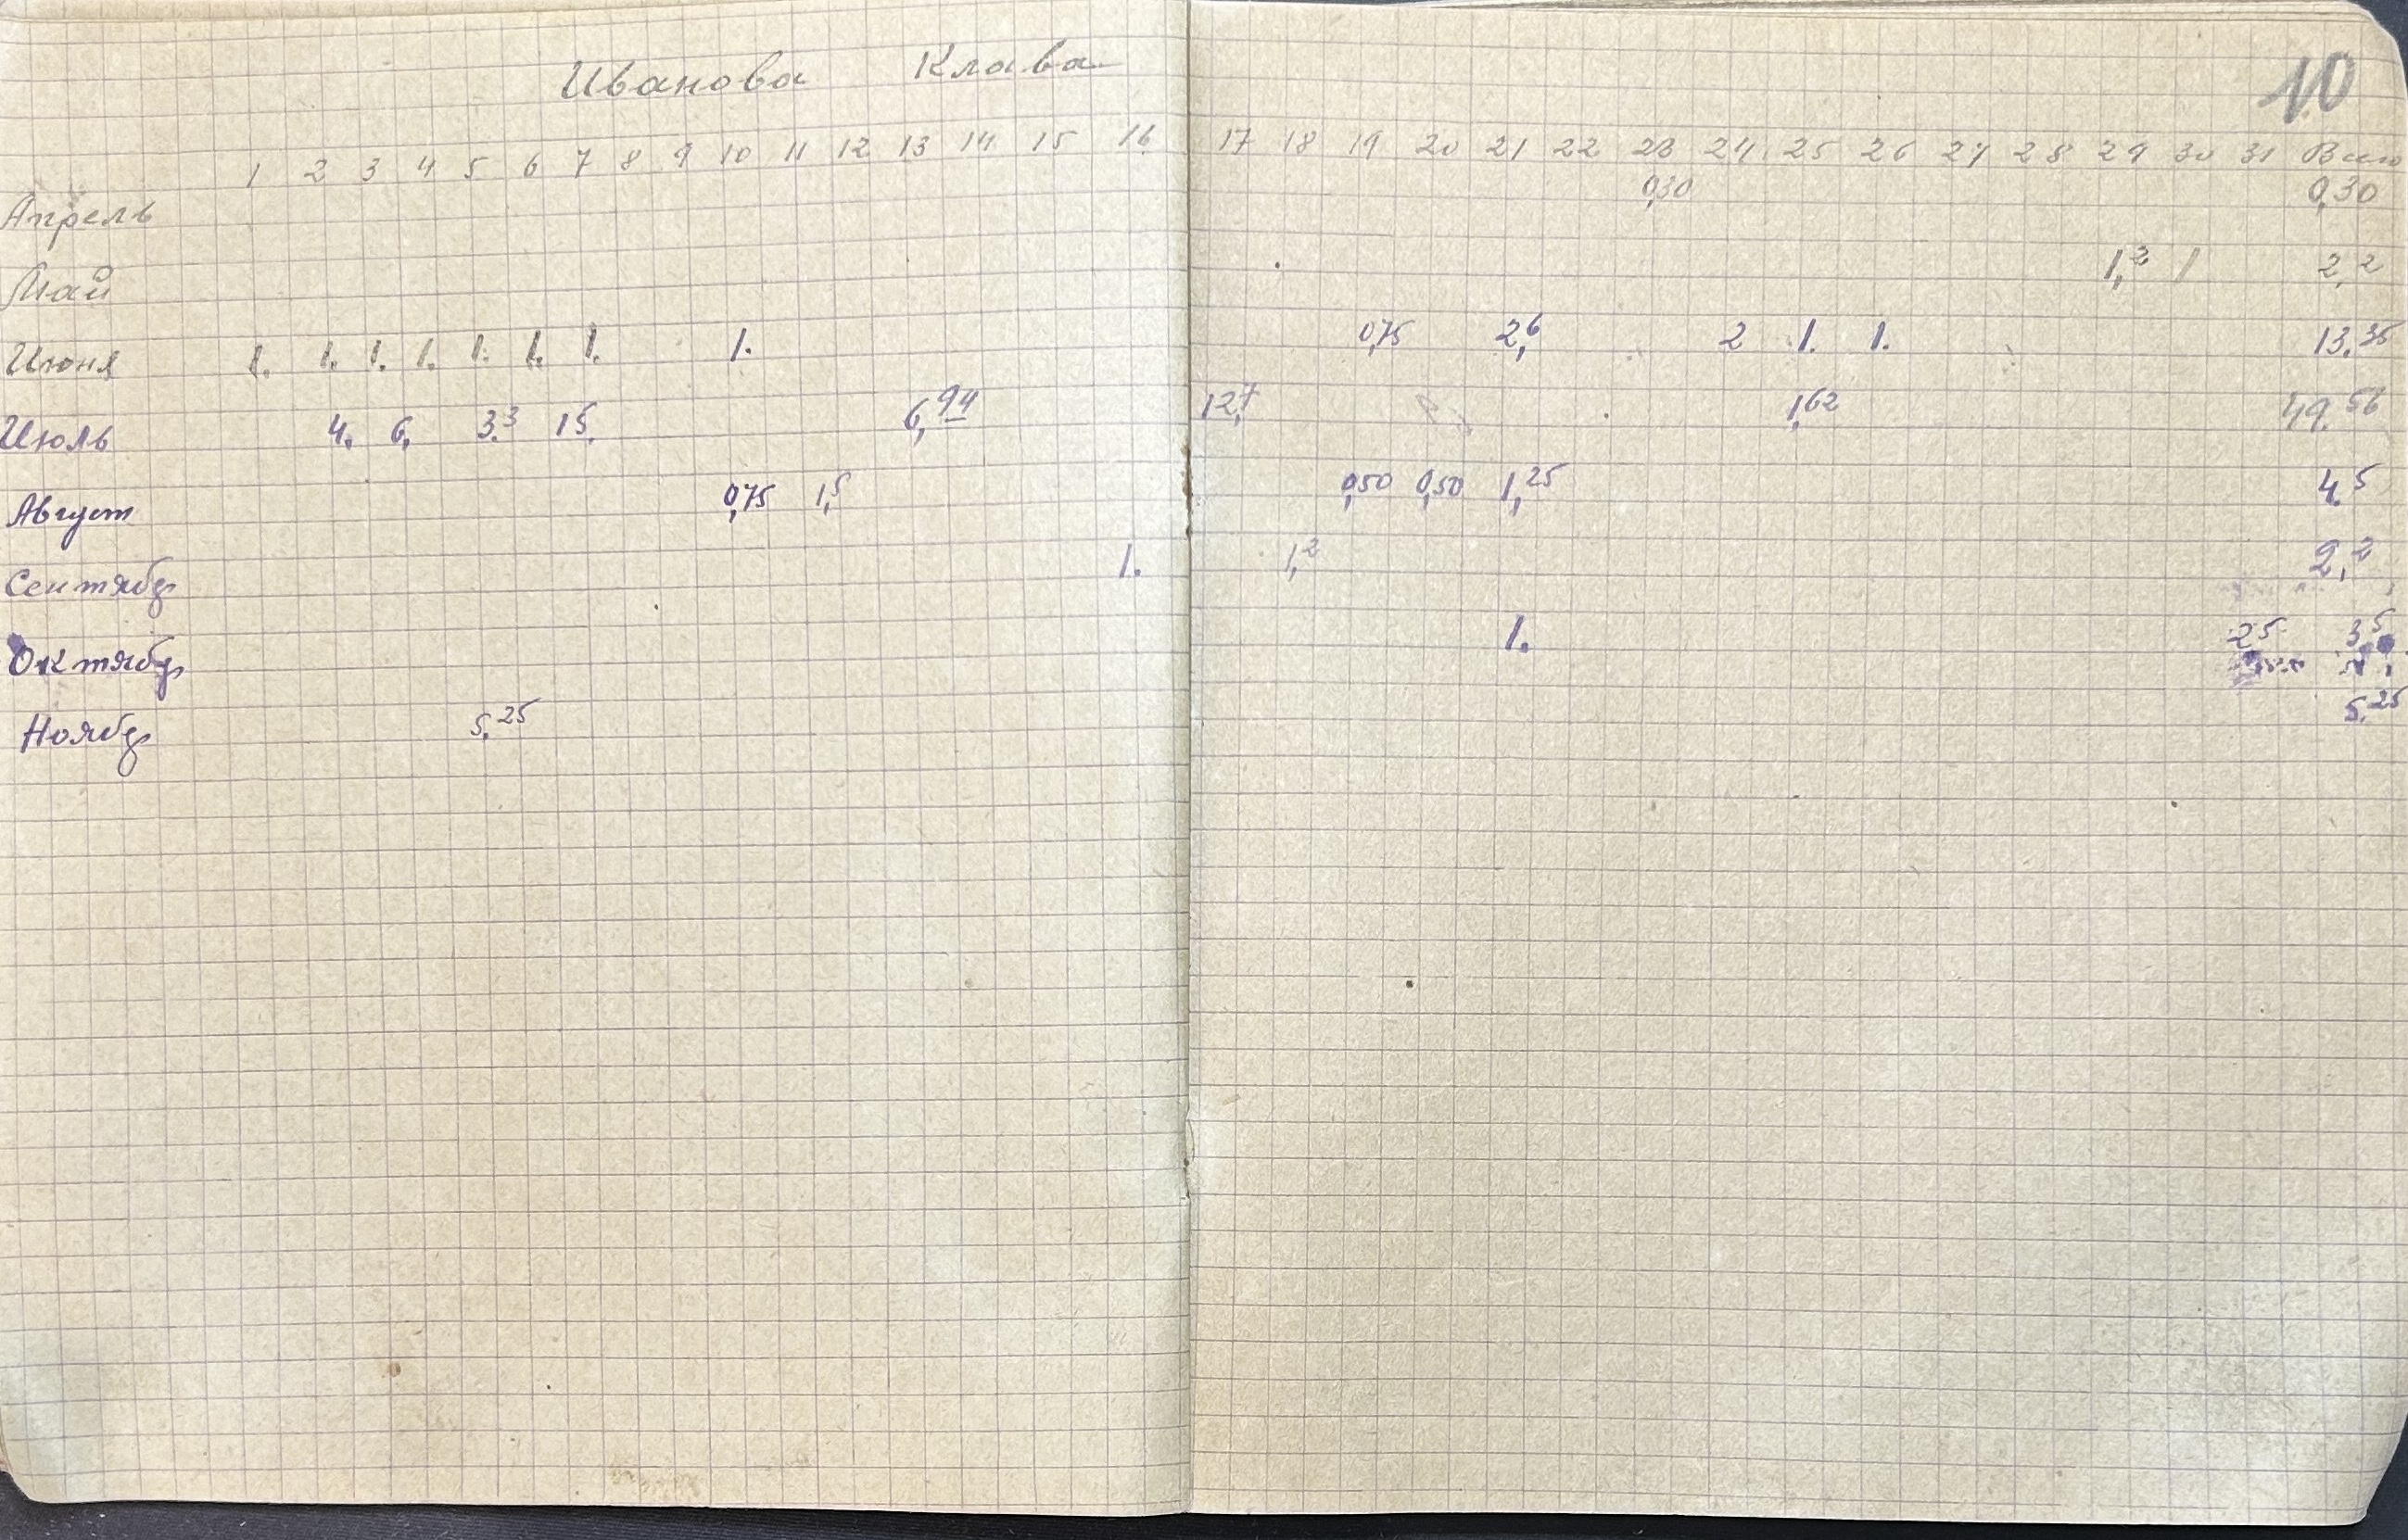 Иванова Клава
10
1 2 3 4 5 6 7 8 9 10 11 12 13 14 15 16 17 18 19 20 21 22 23 24 25 26 27 28 29 30 31
Апрель 0,30 0,30
Май 1,2 1 2,2
Июня 1. 1. 1. 1. 1. 1. 1. 1. 0,75 2,6 2 1. 1. 13.35
Июль 4. 6, 3.3 15. 6,94 12,7 1,62 49.56
Август 0,75 1,5 0,50 0,50 1,25 4.5
Сентябр 1. 1,2 2,2
Октябр 1. 25 3,5
Ноябр 5.25 5.25